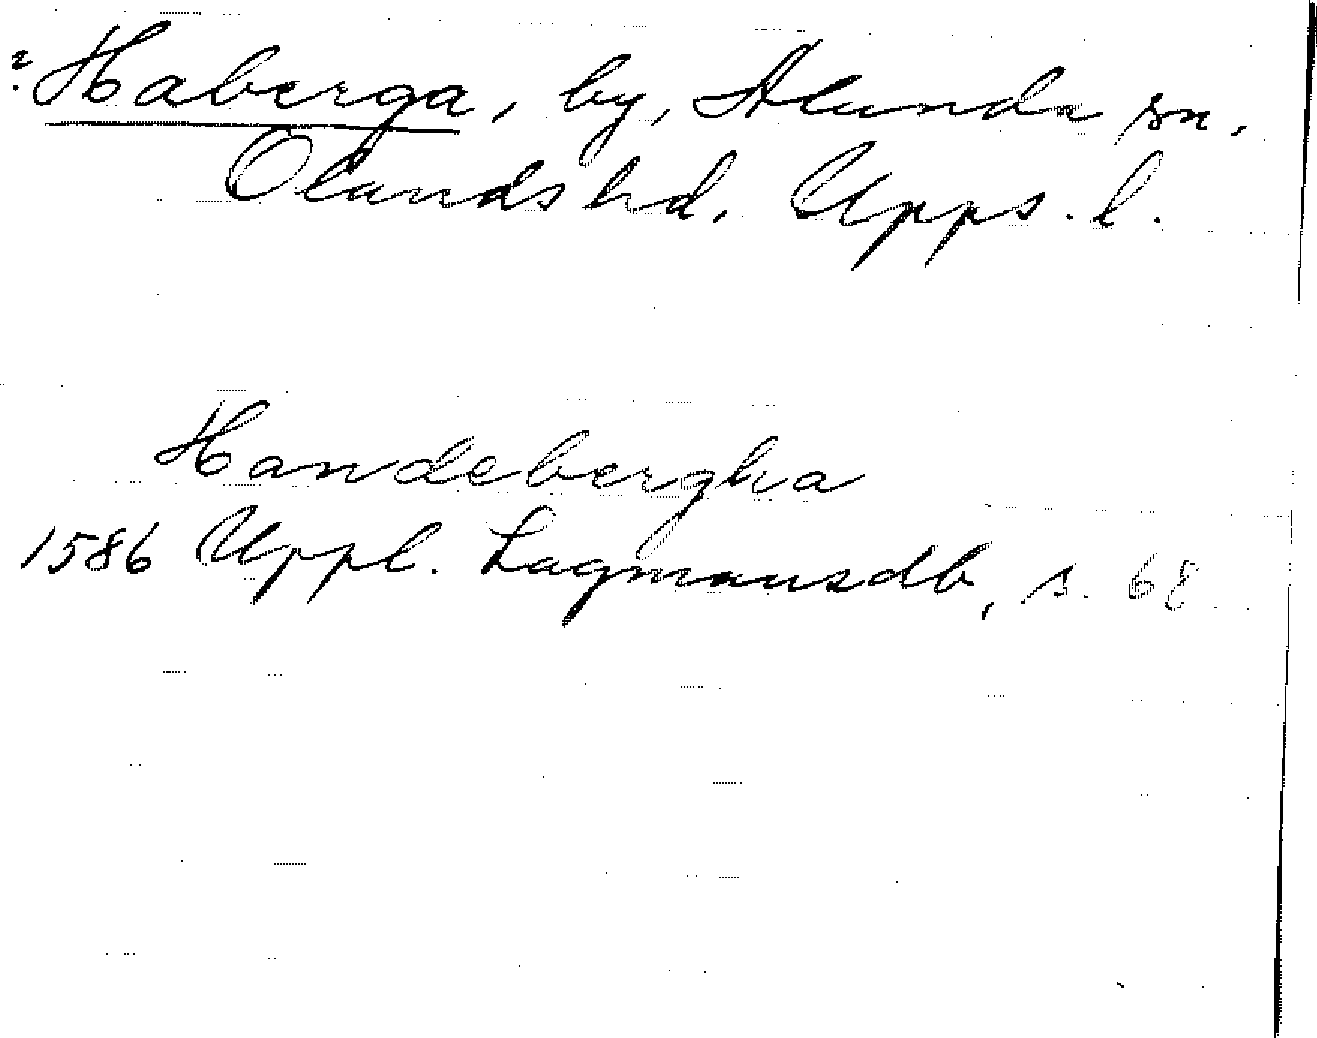 ? Haberga, by, Alunda sn.
Olands hd. Upps. l.
Handebergha
1586 Uppl. Lagmansdb, s. 68